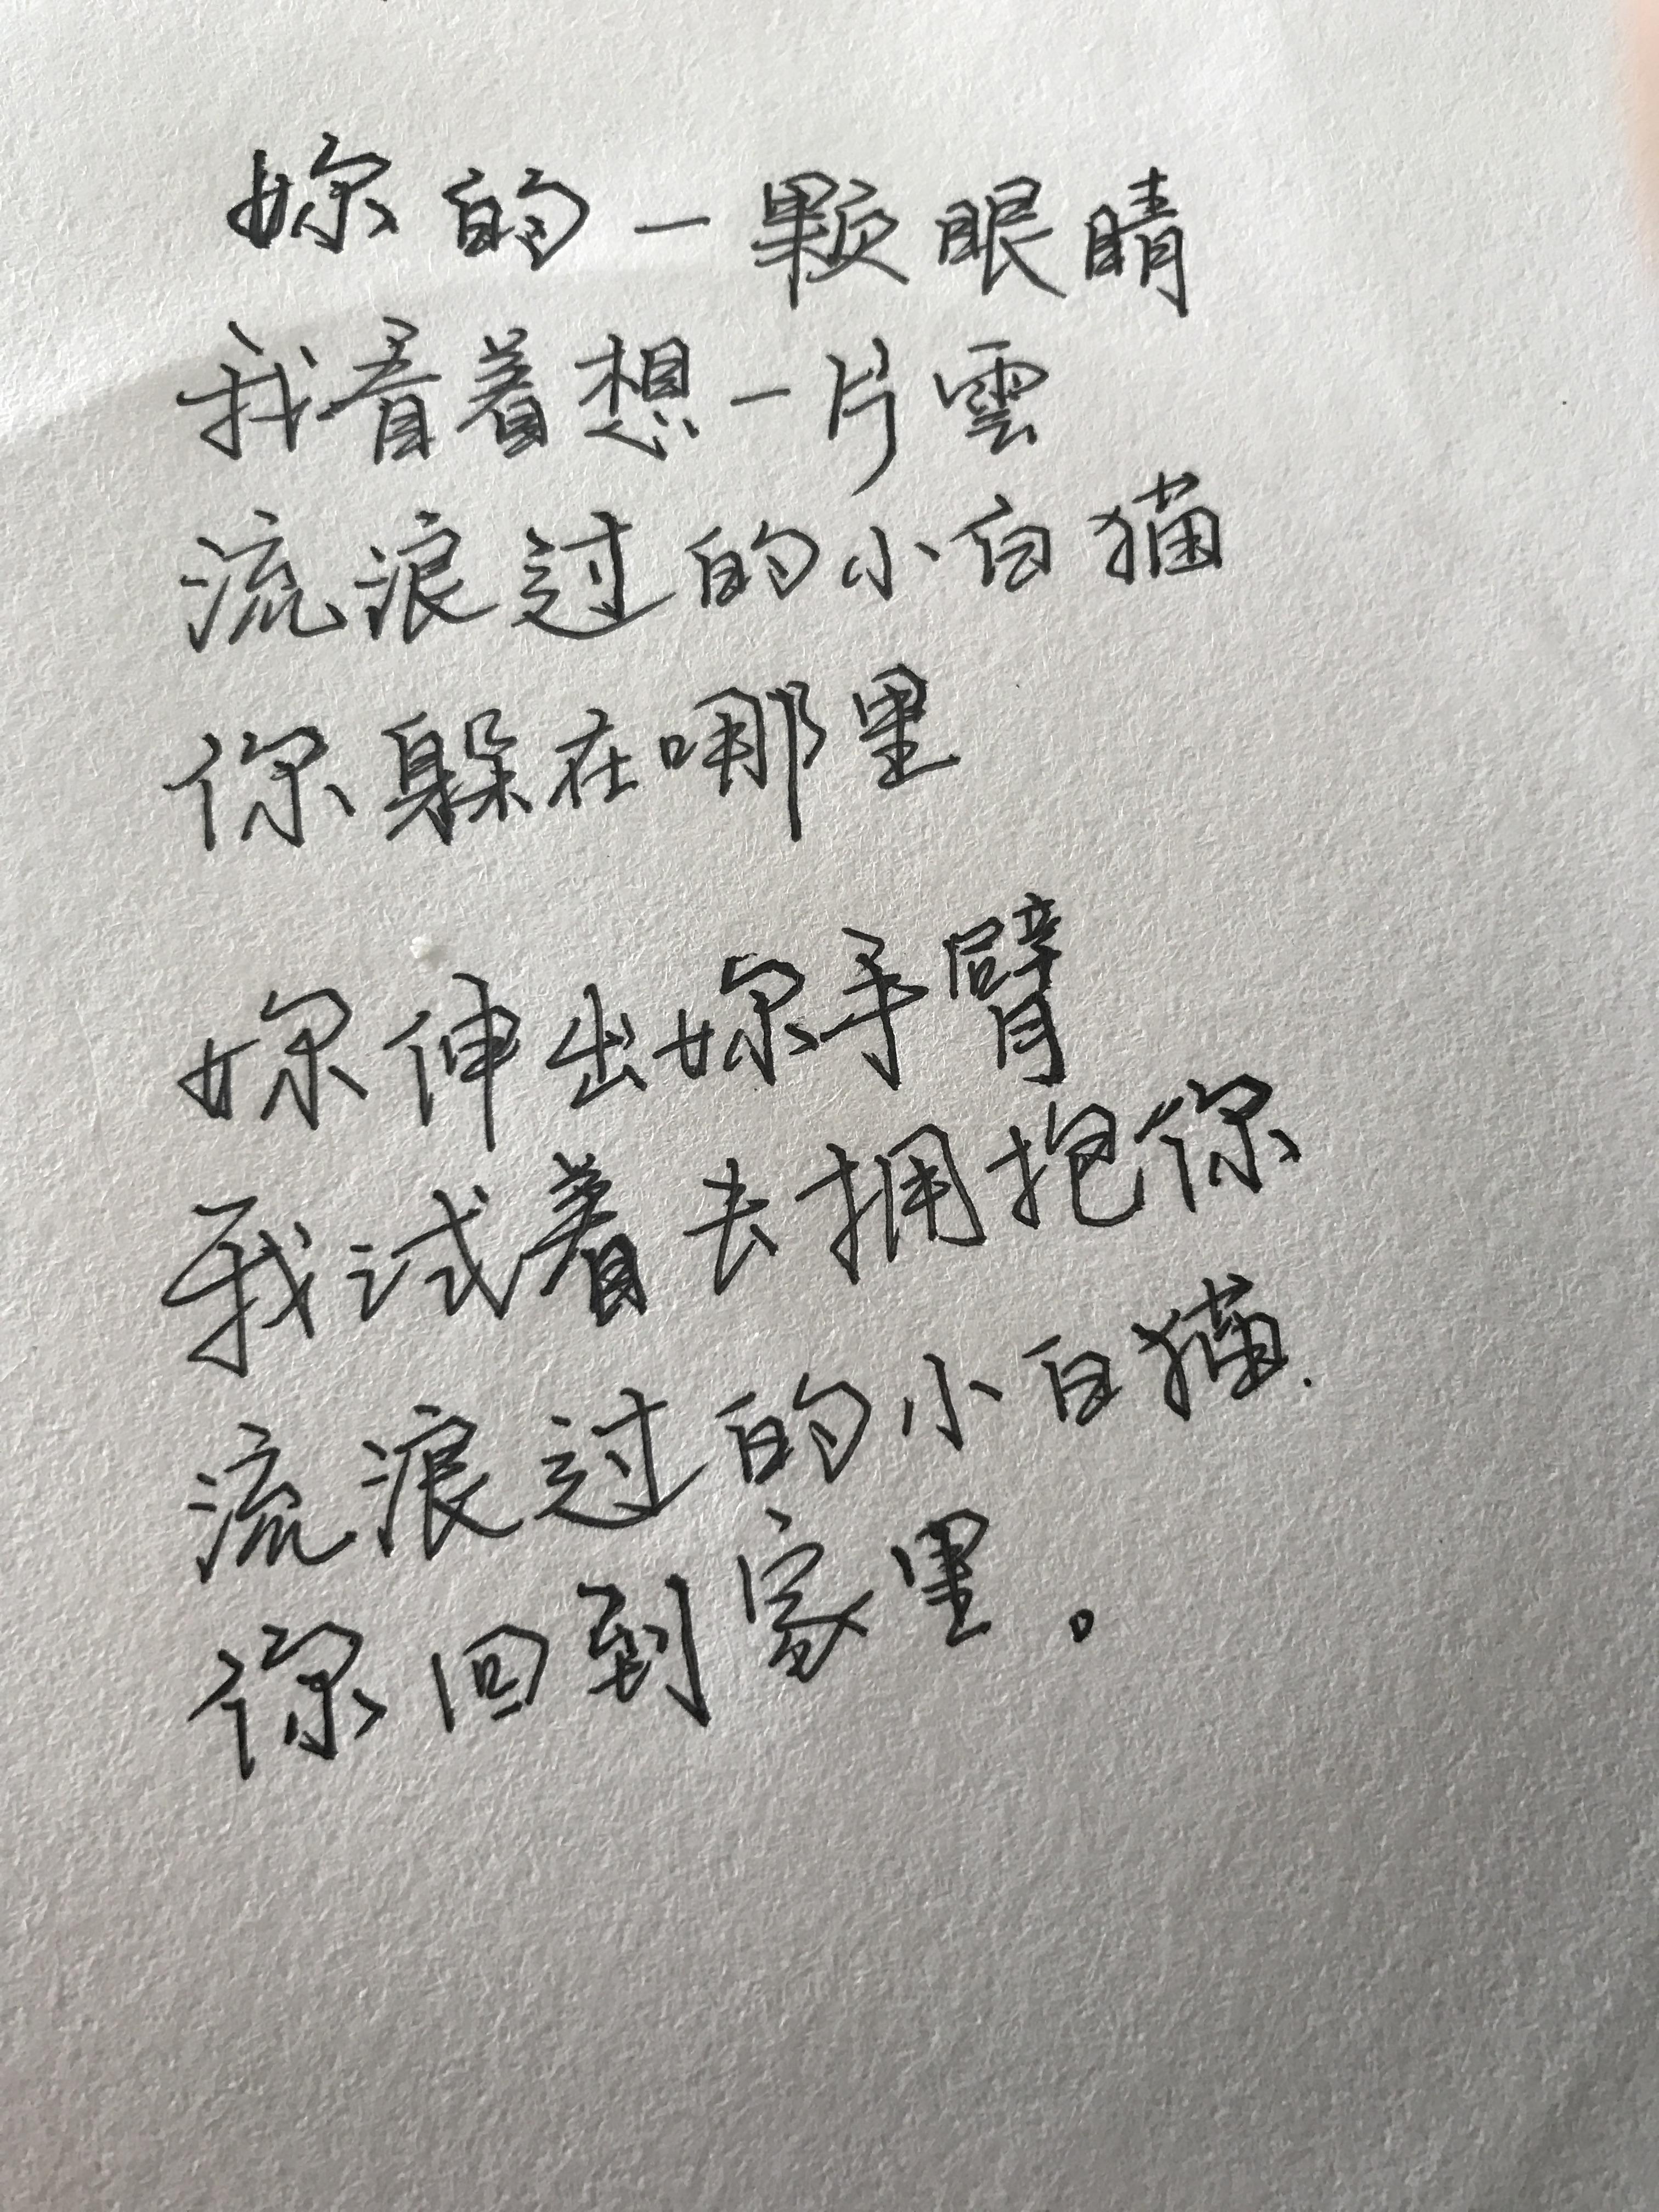 妳的一颗眼睛
我看着想一片雲
流浪过的小白猫
你躲在哪里
妳伸出妳手臂
我试着去拥抱你
流浪过的小白猫.
你回到家里。